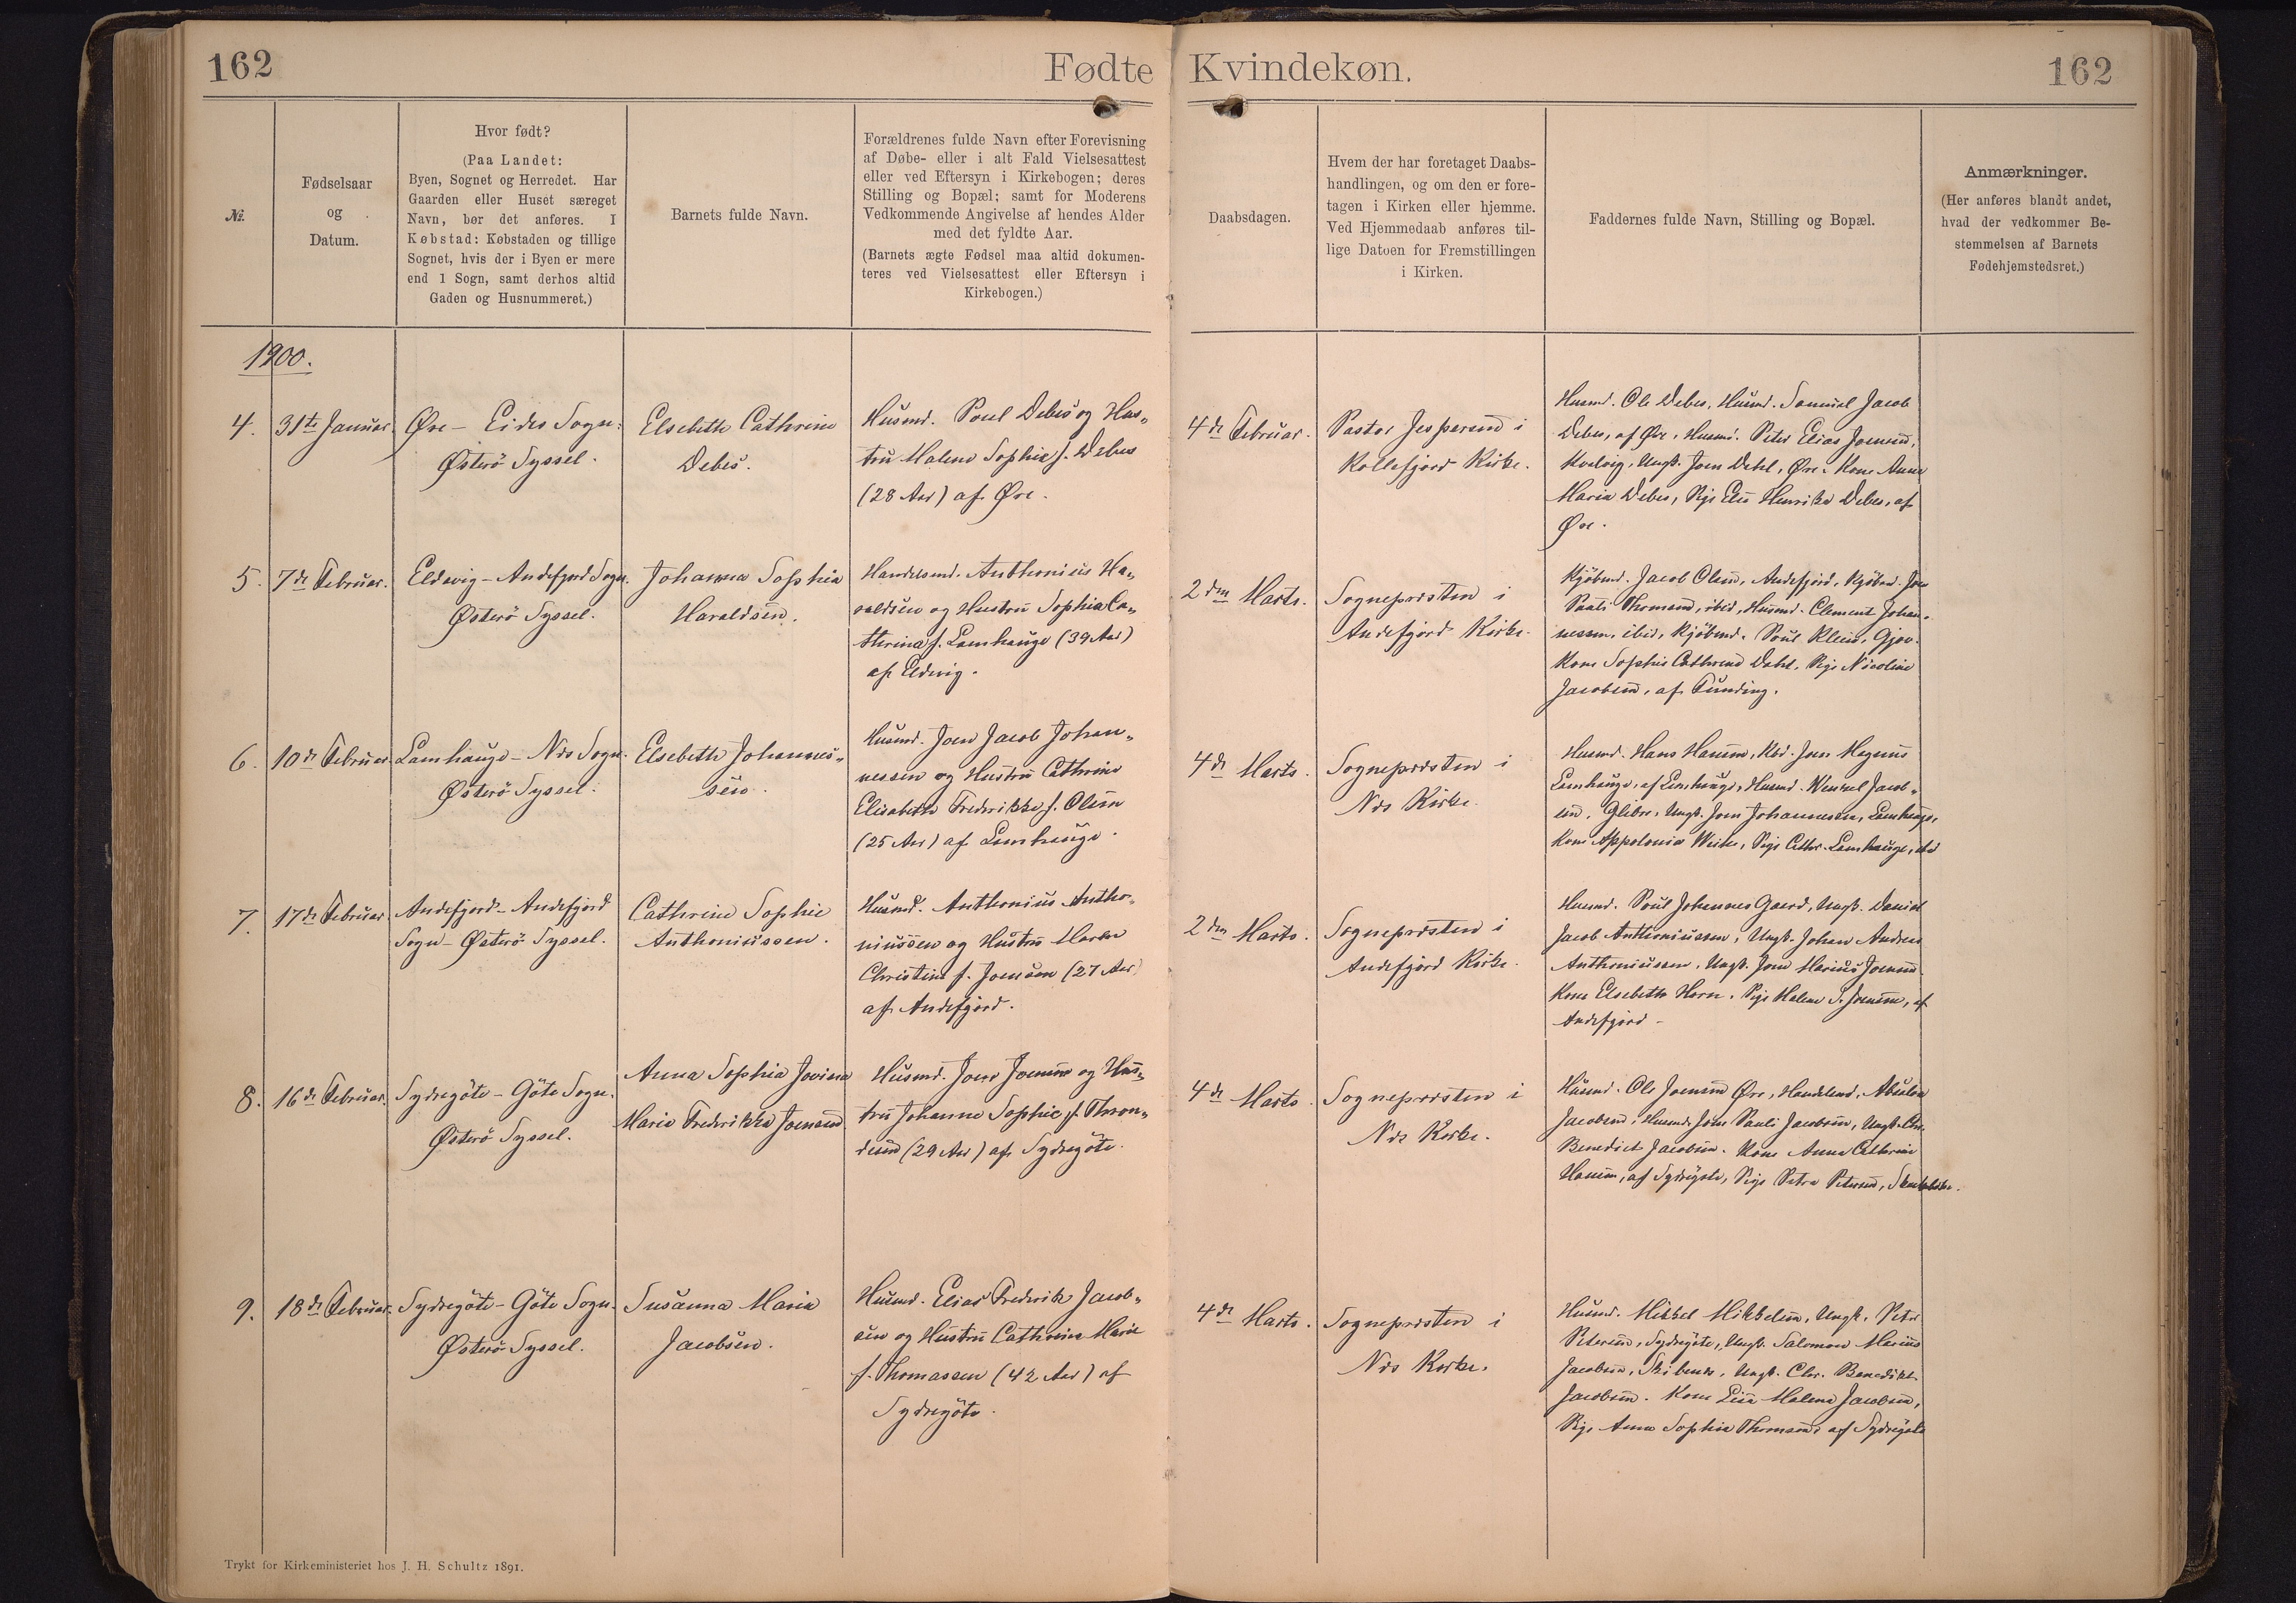 162
Fødte
Kvindekøn.
162
№.
Fødselsaar
og
Datum.
Hvor født?
(Paa Landet:
Byen, Sognet og Herredet. Har
Gaarden eller Huset særeget
Navn, bør det anføres. I
Købstad: Købstaden og tillige
Sognet, hvis der i Byen er mere
end 1 Sogn, samt derhos altid
Gaden og Husnummeret.)
Barnets fulde Navn.
Forældrenes fulde Navn efter Forevisning
af Døbe- eller i alt Fald Vielsesattest
eller ved Eftersyn i Kirkebogen; deres
Stilling og Bopæl; samt for Moderens
Vedkommende Angivelse af hendes Alder
med det fyldte Aar.
(Barnets ægte Fødsel maa altid dokumen-
teres ved Vielsesattest eller Eftersyn i
Kirkebogen.)
Daabsdagen.
Hvem der har foretaget Daabs-
handlingen, og om den er fore-
tagen i Kirken eller hjemme.
Ved Hjemmedaab anføres til-
lige Datoen for Fremstillingen
i Kirken.
Faddernes fulde Navn, Stilling og Bopæl.
Anmærkninger.
(Her anføres blandt andet,
hvad der vedkommer Be-
stemmelsen af Barnets
Fødehjemstedsret.)
1900.
4.
31te Januar.
Øre - Eides Sogn.
Østerö Syssel.
Elsebeth Cathrine
Debes.
Husmd. Poul Debes og Hus-
tru Malene Sophie f. Debes
(28 Aar) af Øre.
4de Februar.
Pastor Jespersen i
Kollefjord Kirke.
Husmd. Ole Debes, Husmd. Samuel Jacob
Debes, af Øre, Husmd. Peter Elias Joensen,
Ungk. Joen Dahl, Øre. Kone Anne
Maria Debes, Pige Henrikke Debes, af
Øre.
5.
7de Februar.
Eldevig - Andefjord Sogn.
Österö Syssel.
Johanna Sophia
Haraldsen.
Handelsmd. Anthonius Ha-
raldsen og Hustru Sophia Ca-
thrina f. Lamhauge (39 Aar)
af Eldevig.
2den Marts.
Sognepræsten i
Andefjord Kirke.
Kjöbmd. Jacob Olsen, Andefjord, Kjöbmd. Joen
Pauli Thomsen, ibid, Husmd. Clement Johan-
nessen, ibid, Kjöbmd. Poul Klein, Gjov.
Kone Sophie Cathrine Dahl, Pige Nicoline
Jacobsen, af Funding.
6.
10de Februar
Lamhauge - Næs Sogn.
Østerö Syssel.
Elsebeth Johannes-
sen.
Husmd. Joen Jacob Johan-
nessen og Hustru Cathrine
Elisabeth Frederikke f. Olsen
(25 Aar) af Lamhauge.
4de Marts.
Sognepræsten i
Næs Kirke.
Husmd. Hans Hansen, Joen Magnus
Lamhauge, af Lamhauge, Husmd. Jacob-
sen, Glibre, Ungk. Joen Johannessen, Lamhauge,
Kone Appolonia Weihe, Pige Cathr. Lamhauge, ibid
7.
17de Februar
Andefjord - Andefjord
Sogn - Østerö Syssel.
Cathrine Sophie
Anthoniussen.
Husmd. Anthonius Antho-
niussen og Hustru
Christine f. Joensen (27 Aar)
af Andefjord.
2den Marts.
Sognepræsten i
Andefjord Kirke.
Husmd. Poul Johannes Gaard, Ungk. Daniel
Jacob Anthoniussen, Ungk. Johan Andreas
Anthoniussen, Ungk. Joen Marius Joensen
Kone Elsebeth Horn. Pige Malene S. Joensen, af
Andefjord -
8.
16de Februar.
Sydregöte - Göte Sogn.
Østerö Syssel.
Anna Sophia Jovina
Marie Frederikke Joensen
Husmd. Joen Joensen og Hus-
tru Johanne Sophie f. Thron-
desen (29 Aar) af Sydregöte.
4de Marts.
Sognepræsten i
Næs Kirke.
Husmd. Ole Joensen Øre, Handelsmd. Absalon
Jacobsen, Husmd. Joen Pauli Jacobsen, Ungk. Chr.
Benedict Jacobsen. Kone Anna Cathrine
Hansen, af Sydregöte, Pige Petra Petersen,
9.
18de Februar.
Sydregöte - Göte Sogn.
Østerö Syssel.
Susanna Maria
Jacobsen.
Husmd. Elias Frederik Jacob-
sen og Hustru Cathrine Marie
f. Thomassen (42 Aar) af
Sydregöte.
4de Marts.
Sognepræsten i
Næs Kirke.
Husmd. Mikkel Mikkelsen, Ungk. Peter
Petersen, Sydregöte, Ungk. Salomon Marius
Jacobsen, Ungk. Chr. Benedikt
Jacobsen. Kone Lisa Malene Jacobsen,
Pige Anna Sophie Thomsen af Sydregöte
Trykt for Kirkeministeriet hos J. H. Schultz 1891.